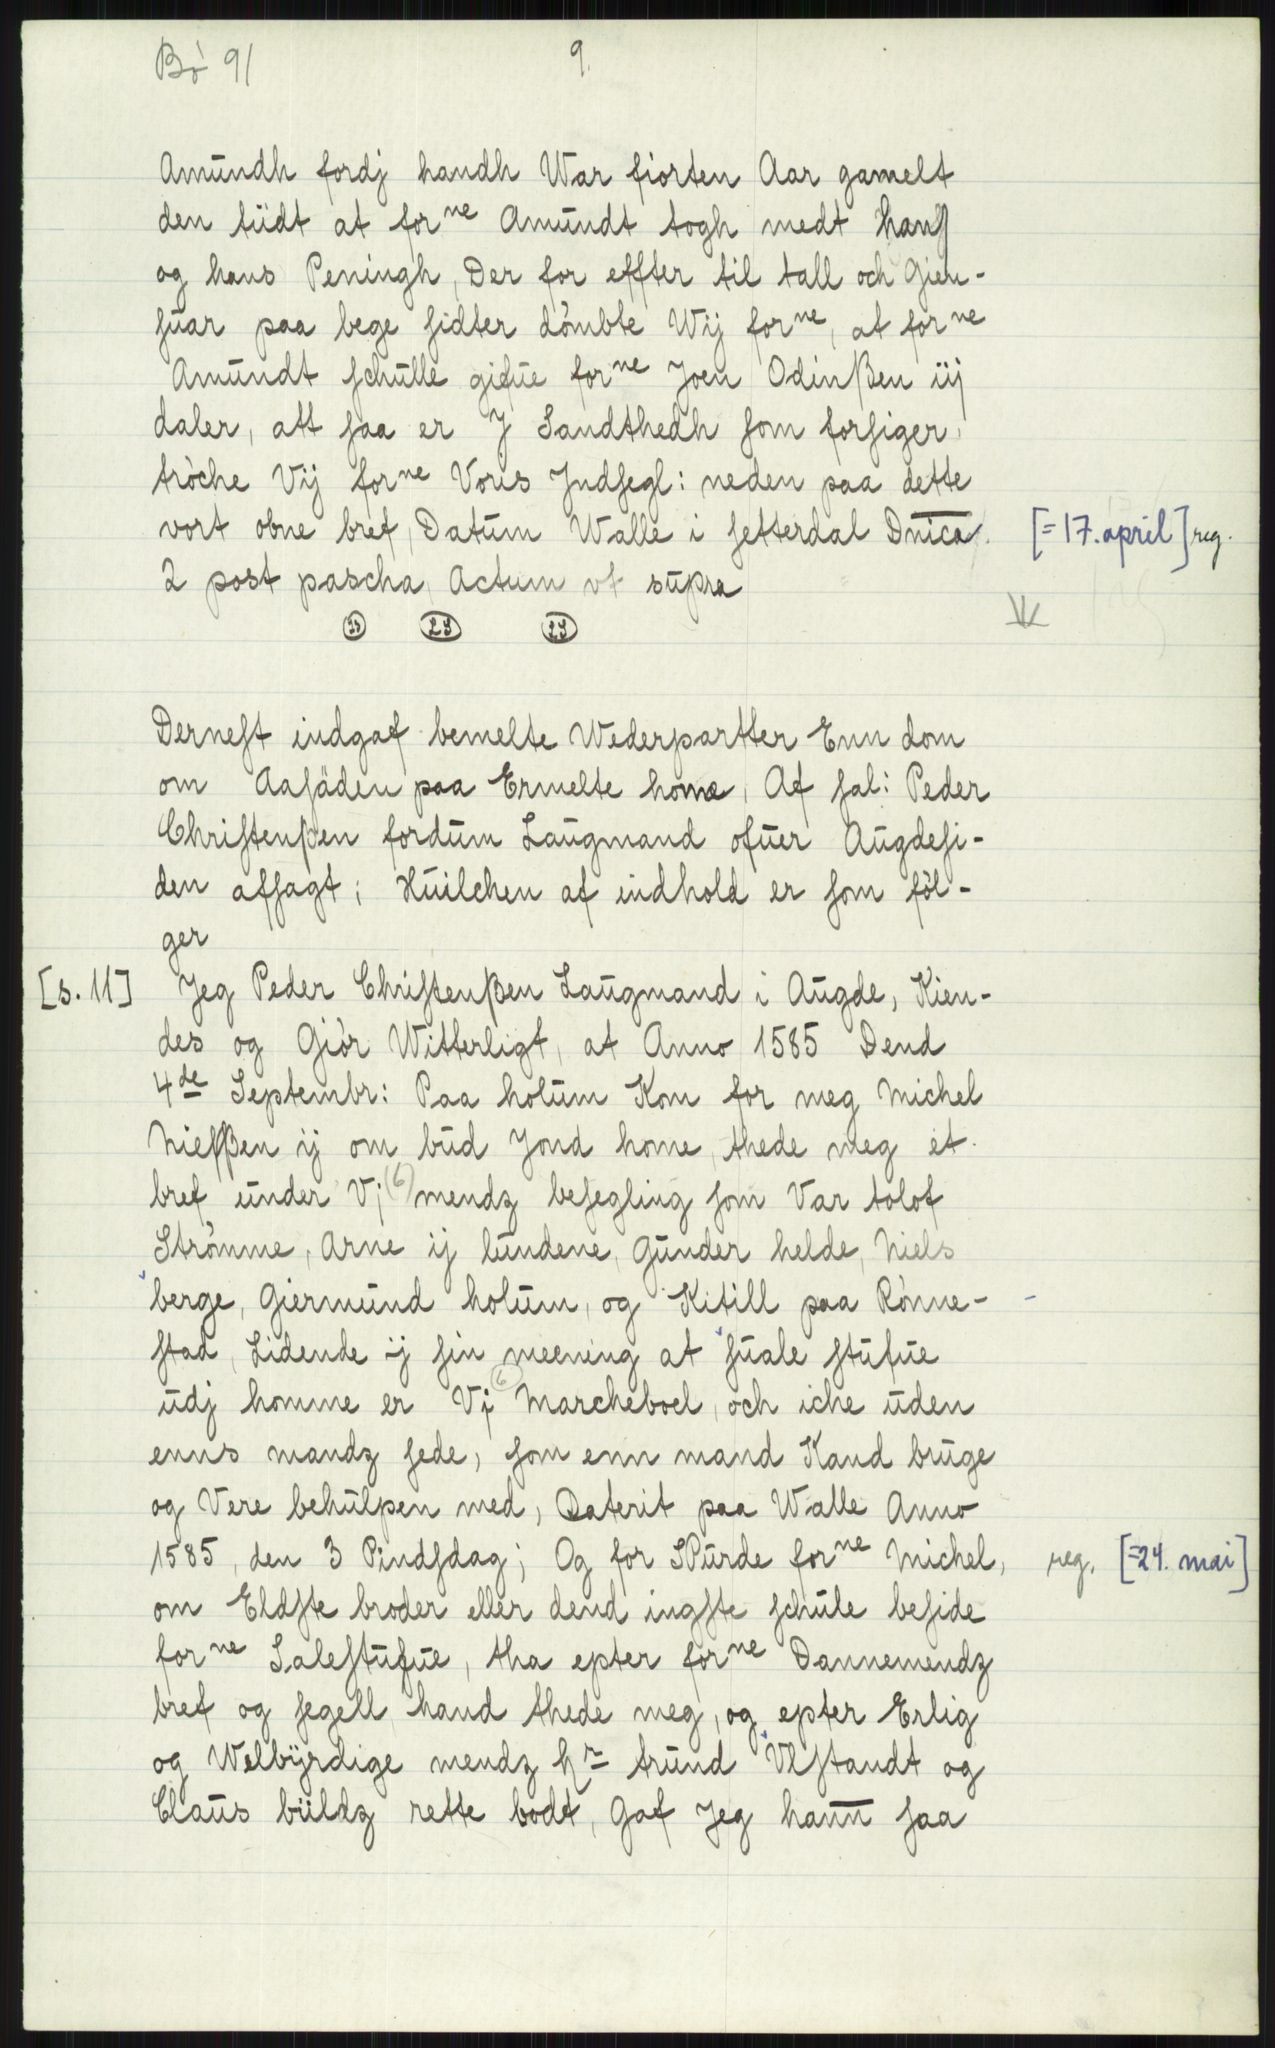 Bö 91
9.
Amundh fordj handh War fiorten Aar gamelt
den tiidt at for ne Amundt togh medt hans
og hans Peningh, Der for effter til tall och Gien-
suar paa bege sidter dömbte Wij for ne, at for ne
Amundt schulle gifue for ne Joen Odinßen iij
daler, att saa er J Sandthedh som forsiger,
tröche Vij for ne Voris Jndsegl: neden paa dette
vort obne bref, Datum Walle i setterdal Dnica. [=17. april] reg.
2 post pascha, Actum vt supra
LS LS LS
Dernest indgaf bemelte Wederpartter Enn dom
om Aasäden paa Ermelte home, Af sal: Peder
Christenßen fordum Laugmand ofuer Augdesi-
den afsagt; Huilchen af indhold er som föl-
ger
[s. 11] Jeg Peder Christenßen Laugmand i Augde, Kien-
des og Giör Witterligt, at Anno 1585 Dend
4de Septembr: Paa holum Kom for meg Michel
Nielßen ij om bud Jond home, thede meg et
bref under Vj (6) mendz besegling som Var tolof
Strömme, Arne ij lundene, Gunder helde, Niels
berge, Giermund holum, og Kitill paa Rönne-
stad, Lidende ij sin meening at suale stufue
udj homme er Vj (6) Marcheboel, och iche uden
enns mandz sede, som enn mand Kand bruge
og Vere behulpen med, Daterit paa Walle Anno
1585, den 3 Pindsdag; Og for SPurde for ne Michel, reg. [=24. mai]
om Eldste broder eller dend ingste schule beside
for ne Salestufue, tha epter for ne Dannemendz
bref og segell hand thede meg, og epter Erlig
og Welbyrdige mendz Hr trund Vlstandt og
Claus büldz rette bodt, Gaf Jeg hann saa